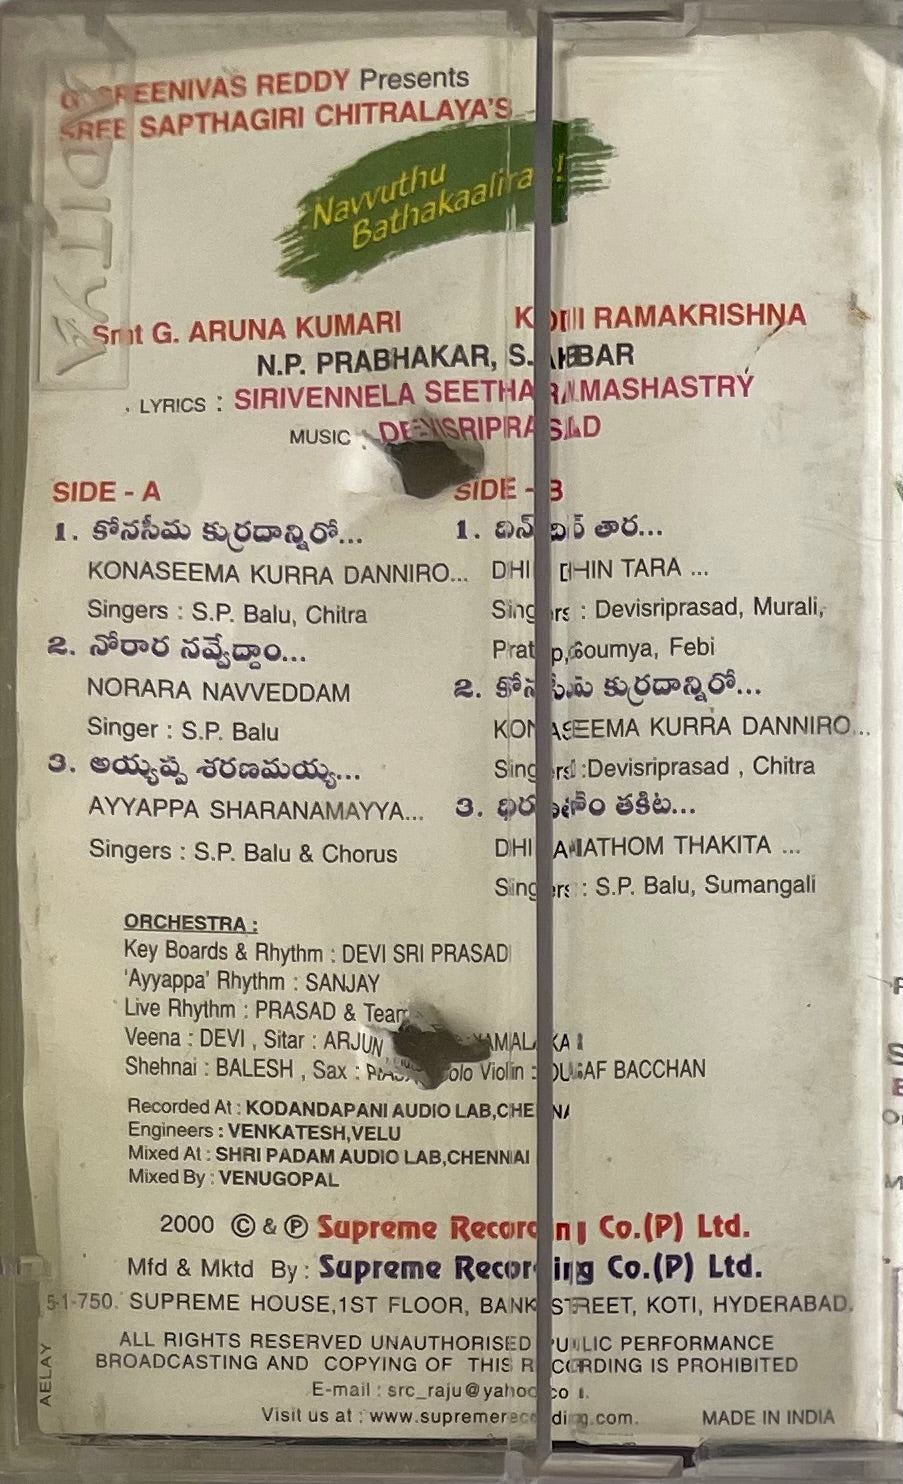 G. SREENIVAS REDDY Presents
SREE SAPTHAGIRI CHITRALAYA'S
ADITYA
Navvuthu
Bathakaalira..!
Smt G. ARUNA KUMARI KODI RAMAKRISHNA
N.P. PRABHAKAR, S. AKBAR
LYRICS : SIRIVENNELA SEETHARAMASHASTRY
MUSIC : DEVISRIPRASAD
SIDE - A
1. కోనసీమ కుర్రదాన్నిరో...
KONASEEMA KURRA DANNIRO...
Singers : S.P. Balu, Chitra
2. నోరార నవ్వేద్దాం...
NORARA NAVVEDDAM
Singer : S.P. Balu
3. అయ్యప్ప శరణమయ్య...
AYYAPPA SHARANAMAYYA...
Singers : S.P. Balu & Chorus
SIDE - B
1. దిన్ దిన్ తార...
DHIN DHIN TARA ...
Singers : Devisriprasad, Murali,
Pratap, Soumya, Febi
2. కోనసీమ కుర్రదాన్నిరో...
KONASEEMA KURRA DANNIRO...
Singers :Devisriprasad , Chitra
3. తకిట...
THAKITA ...
Singers : S.P. Balu, Sumangali
ORCHESTRA :
Key Boards & Rhythm : DEVI SRI PRASAD
'Ayyappa' Rhythm : SANJAY
Live Rhythm : PRASAD & Team
Veena : DEVI , Sitar : ARJUN KAMALAKAR
Shehnai : BALESH , Sax : Solo Violin : BACCHAN
Recorded At : KODANDAPANI AUDIO LAB,CHENNAI
Engineers : VENKATESH,VELU
Mixed At : SHRI PADAM AUDIO LAB,CHENNAI
Mixed By : VENUGOPAL
2000 © & ℗ Supreme Recording Co.(P) Ltd.
Mfd & Mktd By : Supreme Recording Co.(P) Ltd.
5-1-750. SUPREME HOUSE,1ST FLOOR, BANK STREET, KOTI, HYDERABAD.
ALL RIGHTS RESERVED UNAUTHORISED PUBLIC PERFORMANCE
BROADCASTING AND COPYING OF THIS RECORDING IS PROHIBITED
E-mail : src_raju@yahoo.com.
Visit us at : www.supremerecording.com. MADE IN INDIA
AELAY